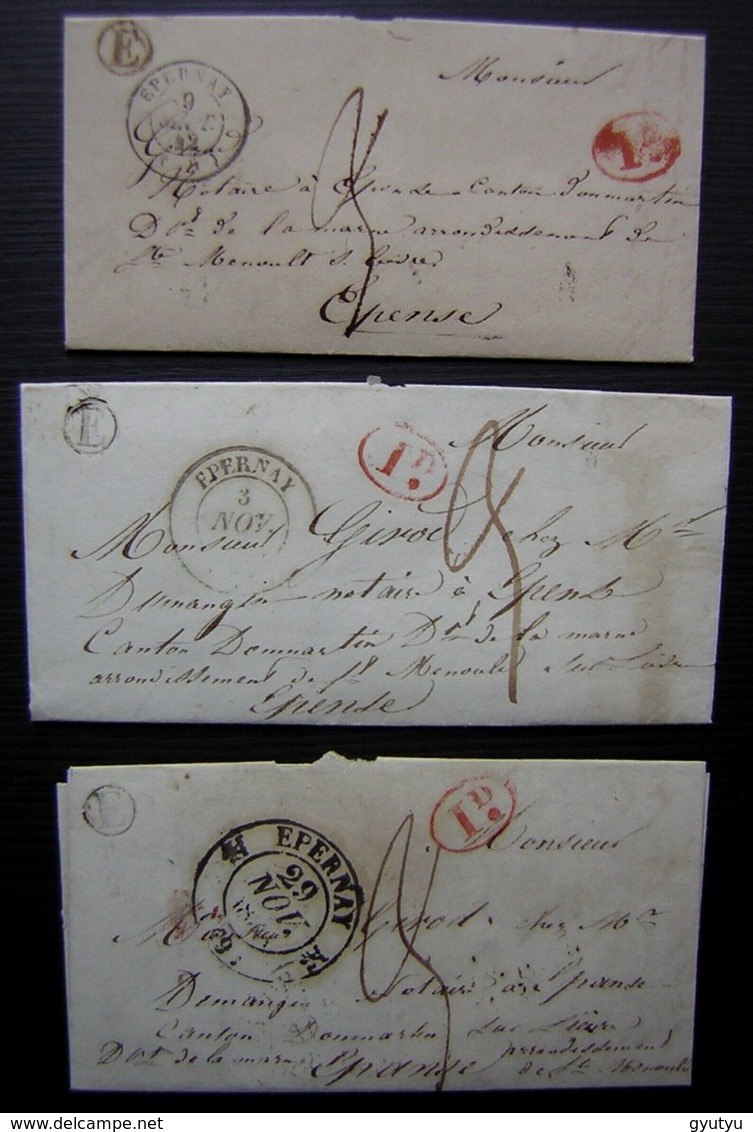 E
EPERNAY
9
Monsieur
1D.
Notaire à Canton Dommartin
Dpt de la marne arrondissement de
Ste Menoult s.
Epense
E
EPERNAY
3
NOV
1D.
Monsieur
Monsieur Girod chez Mr
Demangin notaire à Epense
Canton Dommartin Dpt de la marne
arrondissement de Ste Menoult sur
Epense
E
EPERNAY
29
NOV.
1D.
Monsieur
Girod chez Mr
Demangin Notaire à Epanse
Canton Dommartin sur
Dpt de la marne Epanse arrondissement
de Ste
delcampe.net
gyutyu